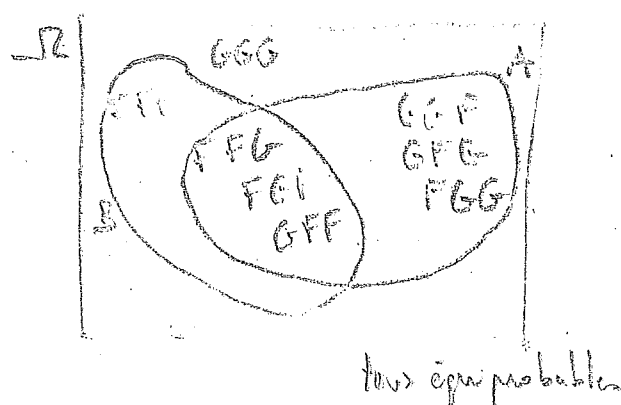 Ω
GGG
A
FFF
GGF
FFG
GFG
FGF
FGG
B
GFF
tous équiprobables